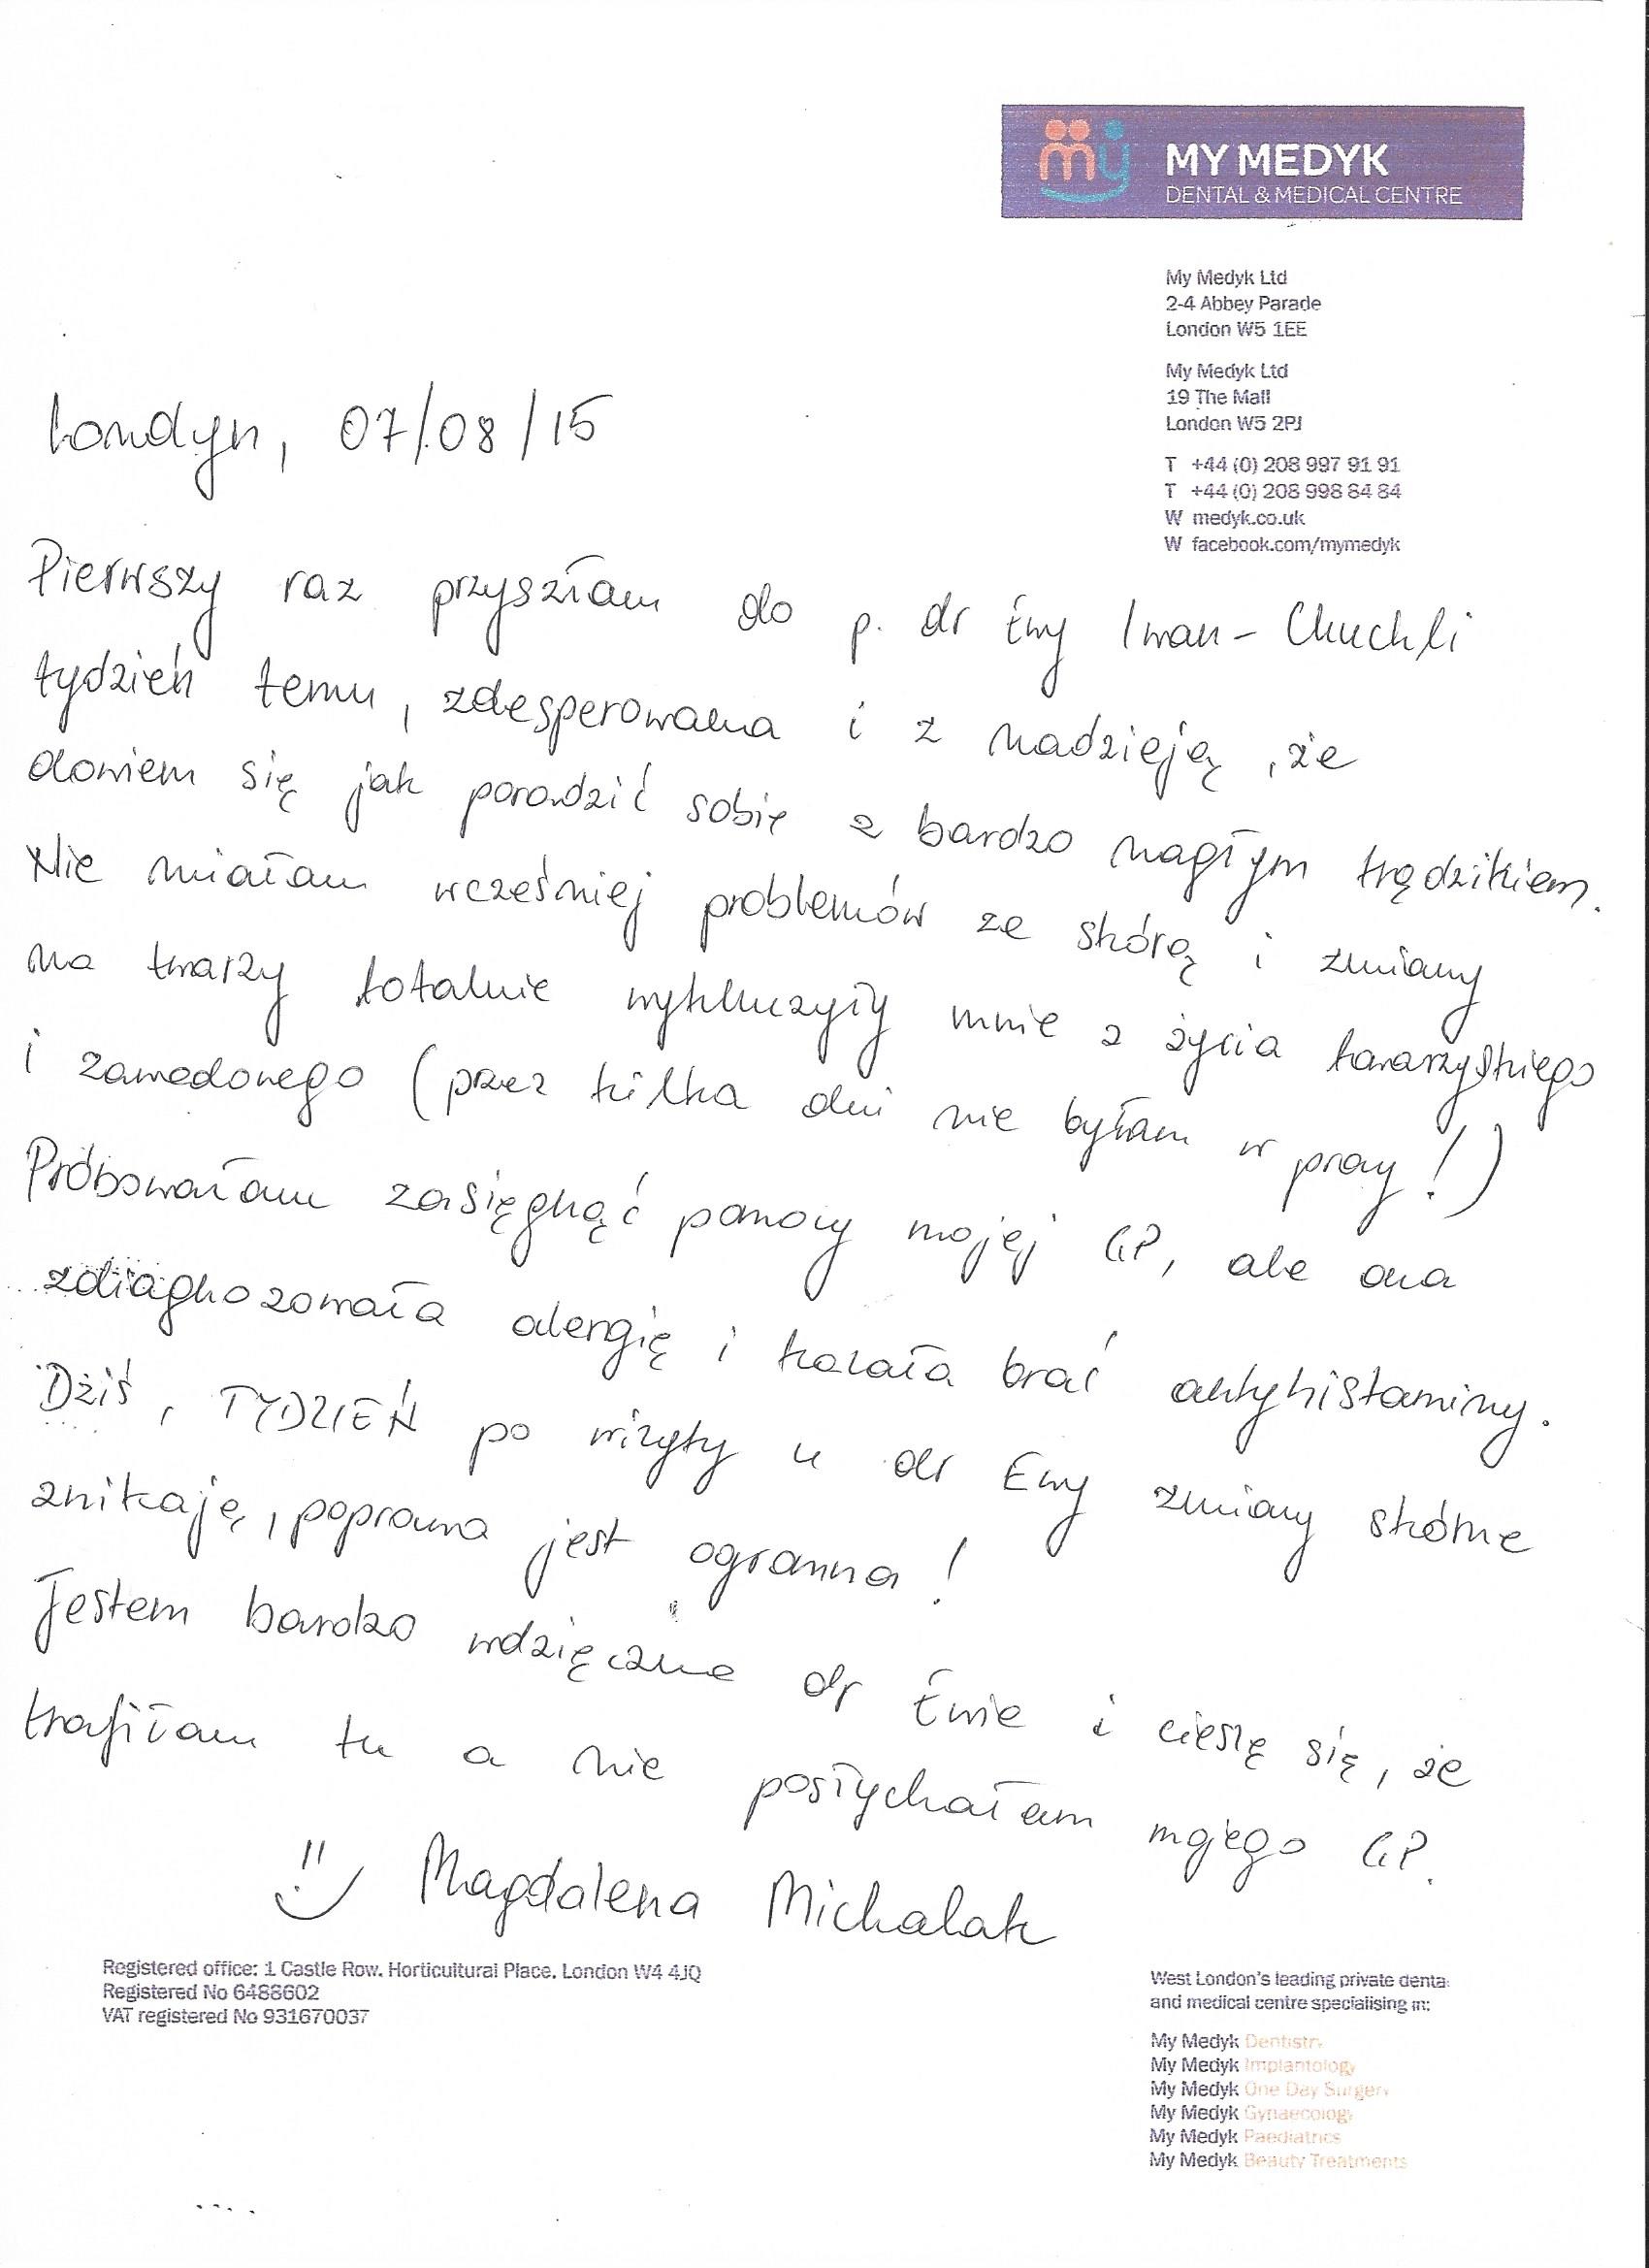 my MY MEDYK
DENTAL & MEDICAL CENTRE
My Medyk Ltd
2-4 Abbey Parade
London W5 1EE
My Medyk Ltd
19 The Mall
London W5 2PJ
T +44 (0) 208 997 91 91
T +44 (0) 208 998 84 84
W medyk.co.uk
W facebook.com/mymedyk
Londyn, 07/08/15
Pierwszy raz przyszłam do p. dr Ewy Iwan-Chuchli
tydzień temu, zdesperowana i z nadzieją, że
dowiem się jak poradzić sobie z bardzo nagłym trądzikiem.
Nie miałam wcześniej problemów ze skórą i zmiany
na twarzy totalnie wykluczyły mnie z życia towarzyskiego
i zawodowego (przez kilka dni nie byłam w pracy!)
Próbowałam zasięgnąć pomocy mojej GP, ale ona
zdiagnozowała alergię i kazała brać antyhistaminy.
Dziś, TYDZIEŃ po wizyty u dr Ewy zmiany skórne
znikają, poprawa jest ogromna!
Jestem bardzo wdzięczna dr Ewie i cieszę się, że
trafiłam tu a nie posłuchałam mojego GP.
Magdalena Michalak
Registered office: 1 Castle Row. Horticultural Place. London W4 4JQ
Registered No 6488602
VAT registered No 931670037
West London's leading private denta
and medical centre specialising in:
My Medyk Dentistry
My Medyk Implantology
My Medyk One Day Surgery
My Medyk Gynaecology
My Medyk Paediatrics
My Medyk Beauty Treatments